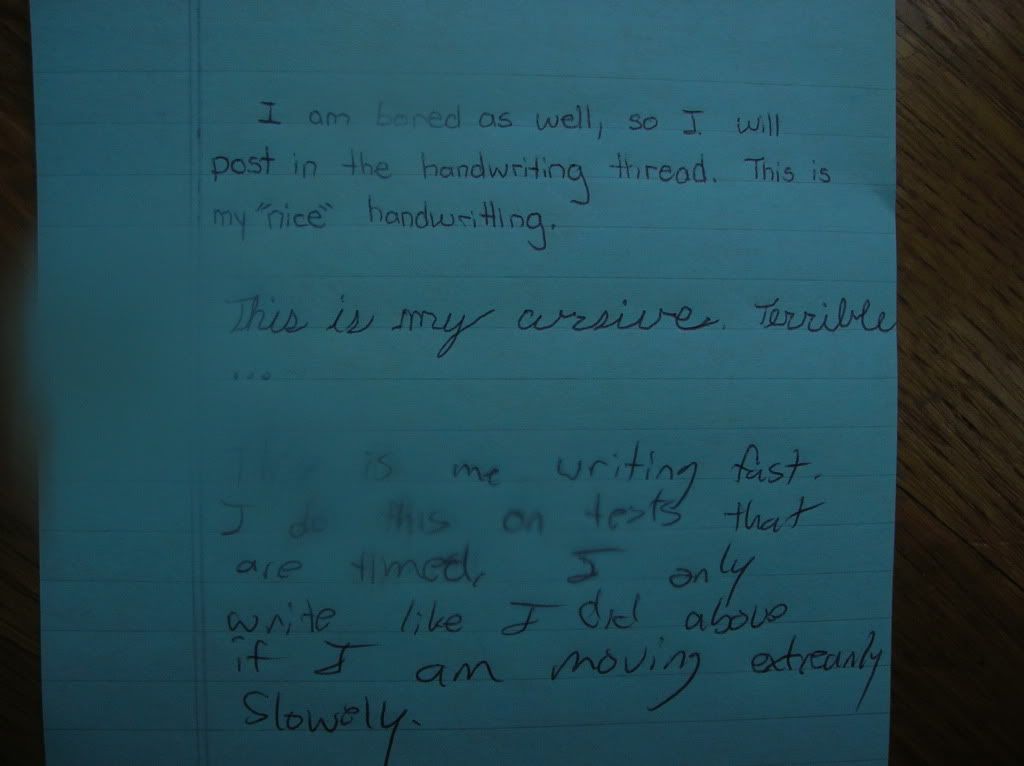 I am bored as well, so I will
post in the handwriting thread. This is
my "nice" handwritting.
This is my cursive. Terrible
...
This is me writing fast.
I do this on tests that
are timed, I only
write like I did above
if I am moving extreamly
Slowely.